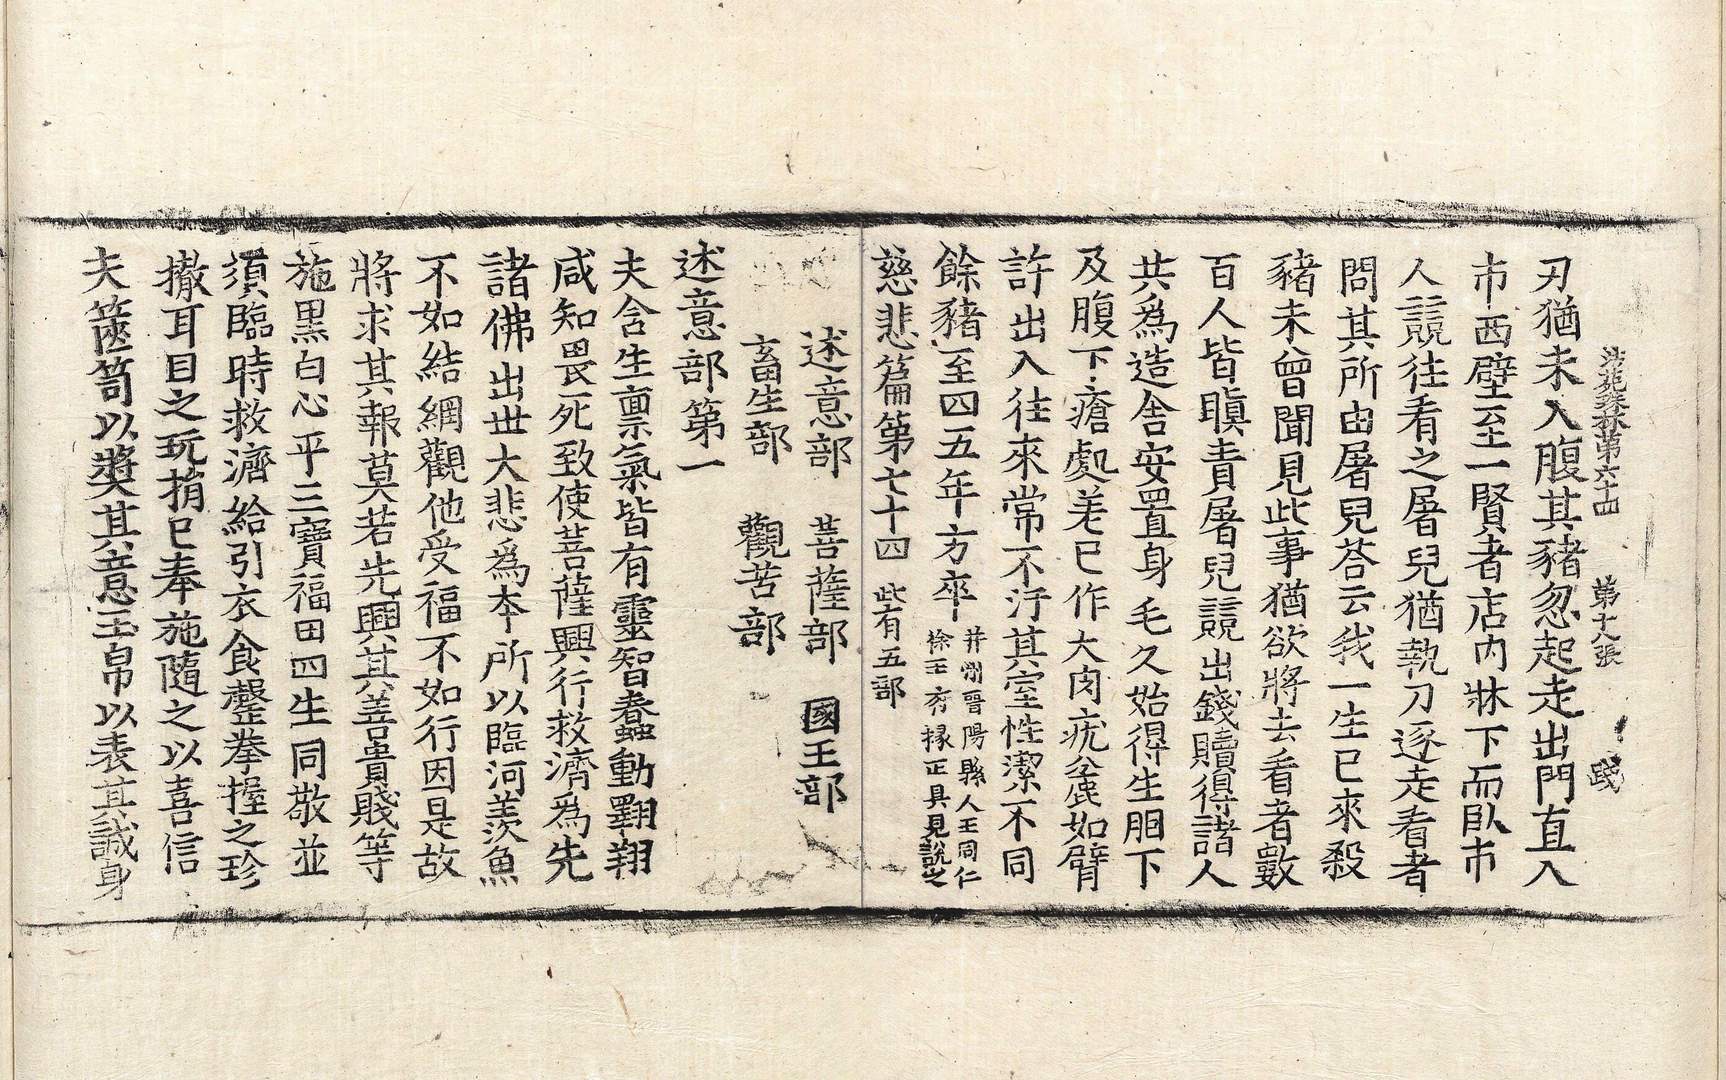 法苑珠林第六十四 第十八張 踐
刃猶未入腹其豬忽起走出門直入
市西壁至一賢者店內牀下而臥市
人競往看之屠兒猶執刀逐走看者
問其所由屠兒荅云我一生已來殺
豬未曾聞見此事猶欲將去看者數
百人皆瞋責屠兒競出錢贖得諸人
共爲造舍安置身毛久始得生腽下
及腹下瘡處差已作大肉疣麁如臂
許出入往來常不汙其室性潔不同
餘豬至四五年方卒 并州晉陽縣人王同仁
徐王府掾正具見說之
慈悲篇第七十四 此有五部
述意部 菩薩部 國王部
畜生部 觀苦部
述意部第一
夫含生禀氣皆有靈智蠢動翾翔
咸知畏死致使菩薩興行救濟爲先
諸佛出世大悲爲本所以臨河羨魚
不如結網觀他受福不如行因是故
將求其報莫若先興其善貴賤等
施黑白心平三寶福田四生同敬並
須臨時救濟給引衣食罄拳握之珍
撤耳目之玩捐已奉施隨之以喜信
夫篋笥以獎其意玉帛以表其誠身